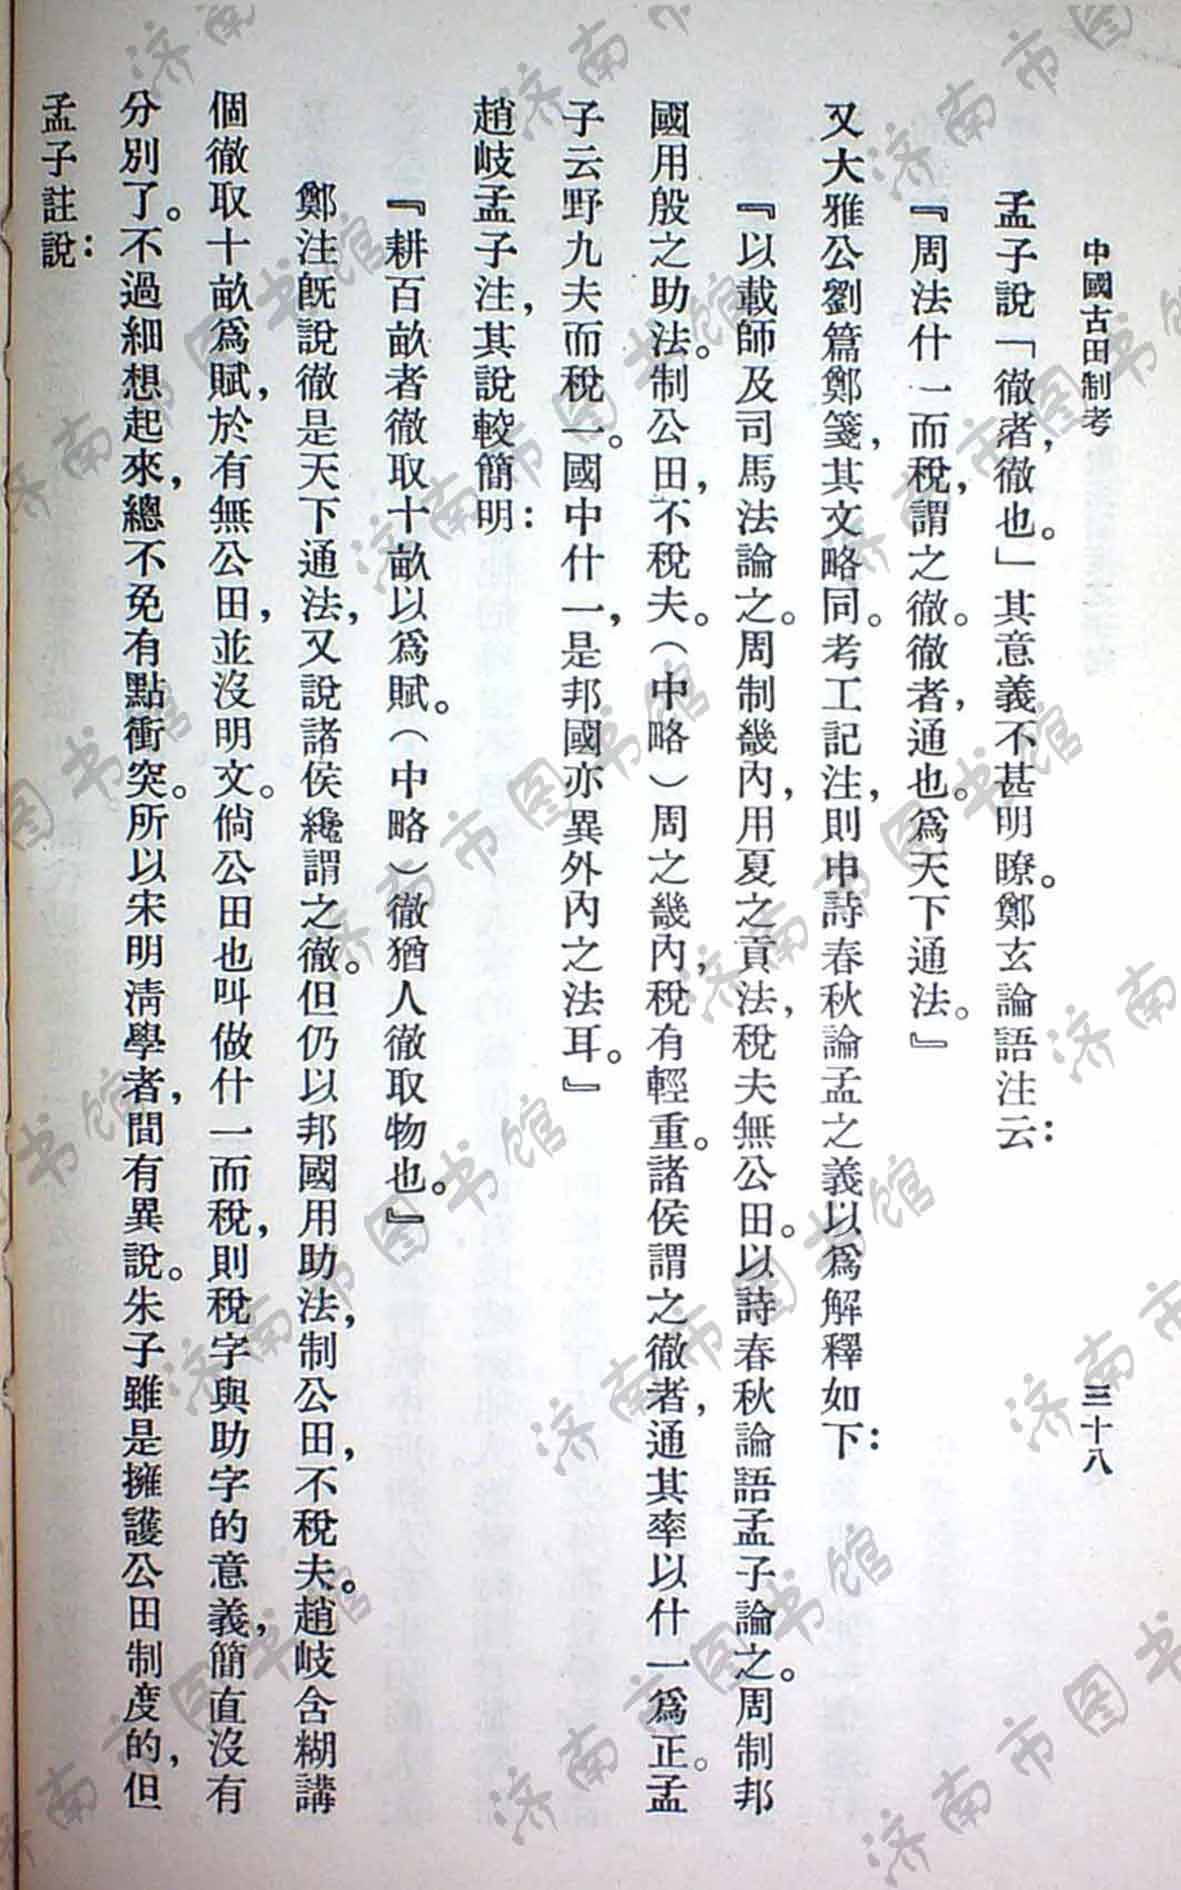 中國古田制考
三十八
孟子說「徹者，徹也。」其意義不甚明瞭。鄭玄論語注云：
『周法什一而稅，謂之徹。徹者，通也。爲天下通法。』
又大雅公劉篇鄭箋，其文略同。考工記注，則申詩春秋論孟之義以爲解釋如下：
『以載師及司馬法論之。周制畿內，用夏之貢法，稅夫無公田。以詩春秋論語孟子論之。周制邦
國用殷之助法。制公田，不稅夫。（中略）周之畿內，稅有輕重。諸侯謂之徹者，通其率以什一爲正。孟
子云野九夫而稅一。國中什一，是邦國亦異外內之法耳。』
趙岐孟子注，其說較簡明：
『耕百畝者徹取十畝以爲賦。（中略）徹猶人徹取物也。』
鄭注旣說徹是天下通法，又說諸侯纔謂之徹。但仍以邦國用助法，制公田，不稅夫。趙岐含糊講
個徹取十畝爲賦，於有無公田，並沒明文。倘公田也叫做什一而稅，則稅字與助字的意義，簡直沒有
分別了。不過細想起來，總不免有點衝突。所以宋明淸學者，間有異說。朱子雖是擁護公田制度的，但
孟子註說：
济南市图书馆